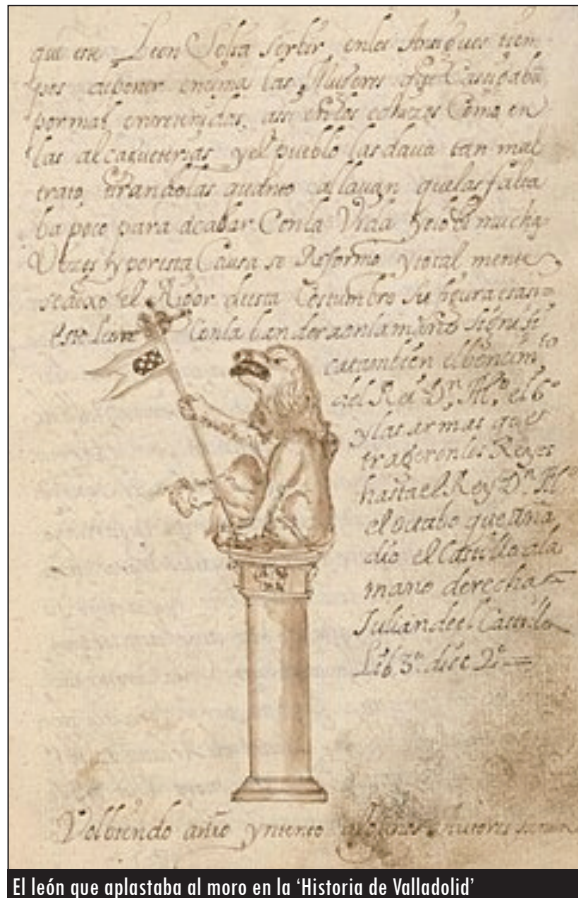 que este Leon Solia Serbir, en los Antiguos tiem
pos a poner encima las Mujeres que Castigaba
por mal entretenidas, assi en los Como en
las alcagueterias y el pueblo las daua tan mal
trato, tirandolas quanto allauan que las falta
ba poco para acabar Con la Vida y esto mucha
Vezes y por esta Causa se Reformo y total mente
se el Rigor desta Costumbre Su figura es asi
este Leon Con la bandera en la mano signifi
ca tambien el
del Rei Dn. el 6º
y las armas que
trageron los Reyes
hasta el Rey Dn.
el octabo que aña
dio el Castillo a la
mano derecha
Julian del Castillo
Lib. 3º disc 2º
Volbiendo a mi yntento algunos Autores
El león que aplastaba al moro en la ‘Historia de Valladolid’